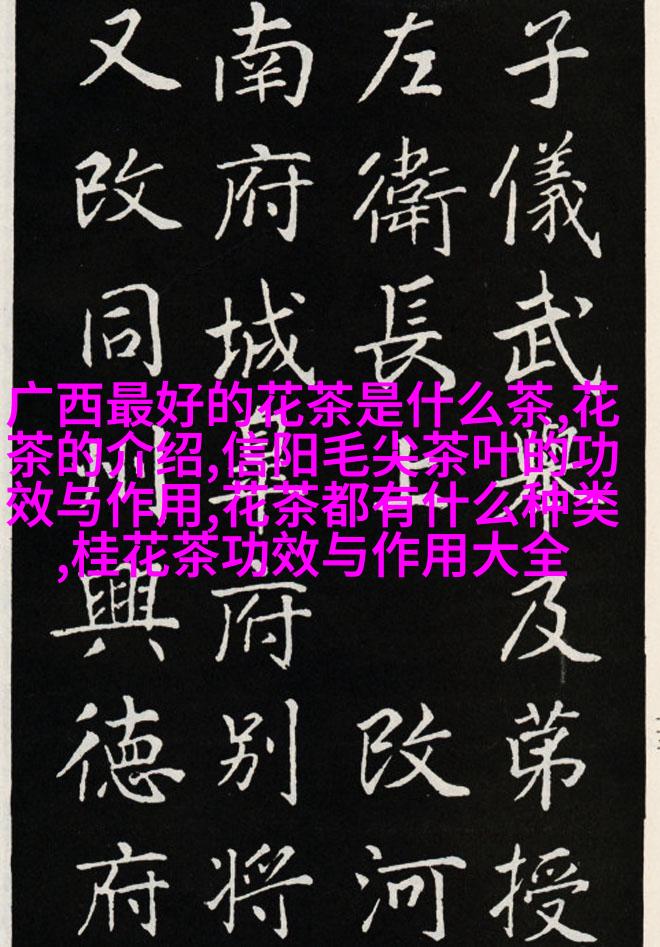 子儀武舉及苐授
左衛長上改河
南府城皋府别将
又改同州興徳府
广西最好的花茶是什么茶,花
茶的介绍,信阳毛尖茶叶的功
效与作用,花茶都有什么种类
,桂花茶功效与作用大全